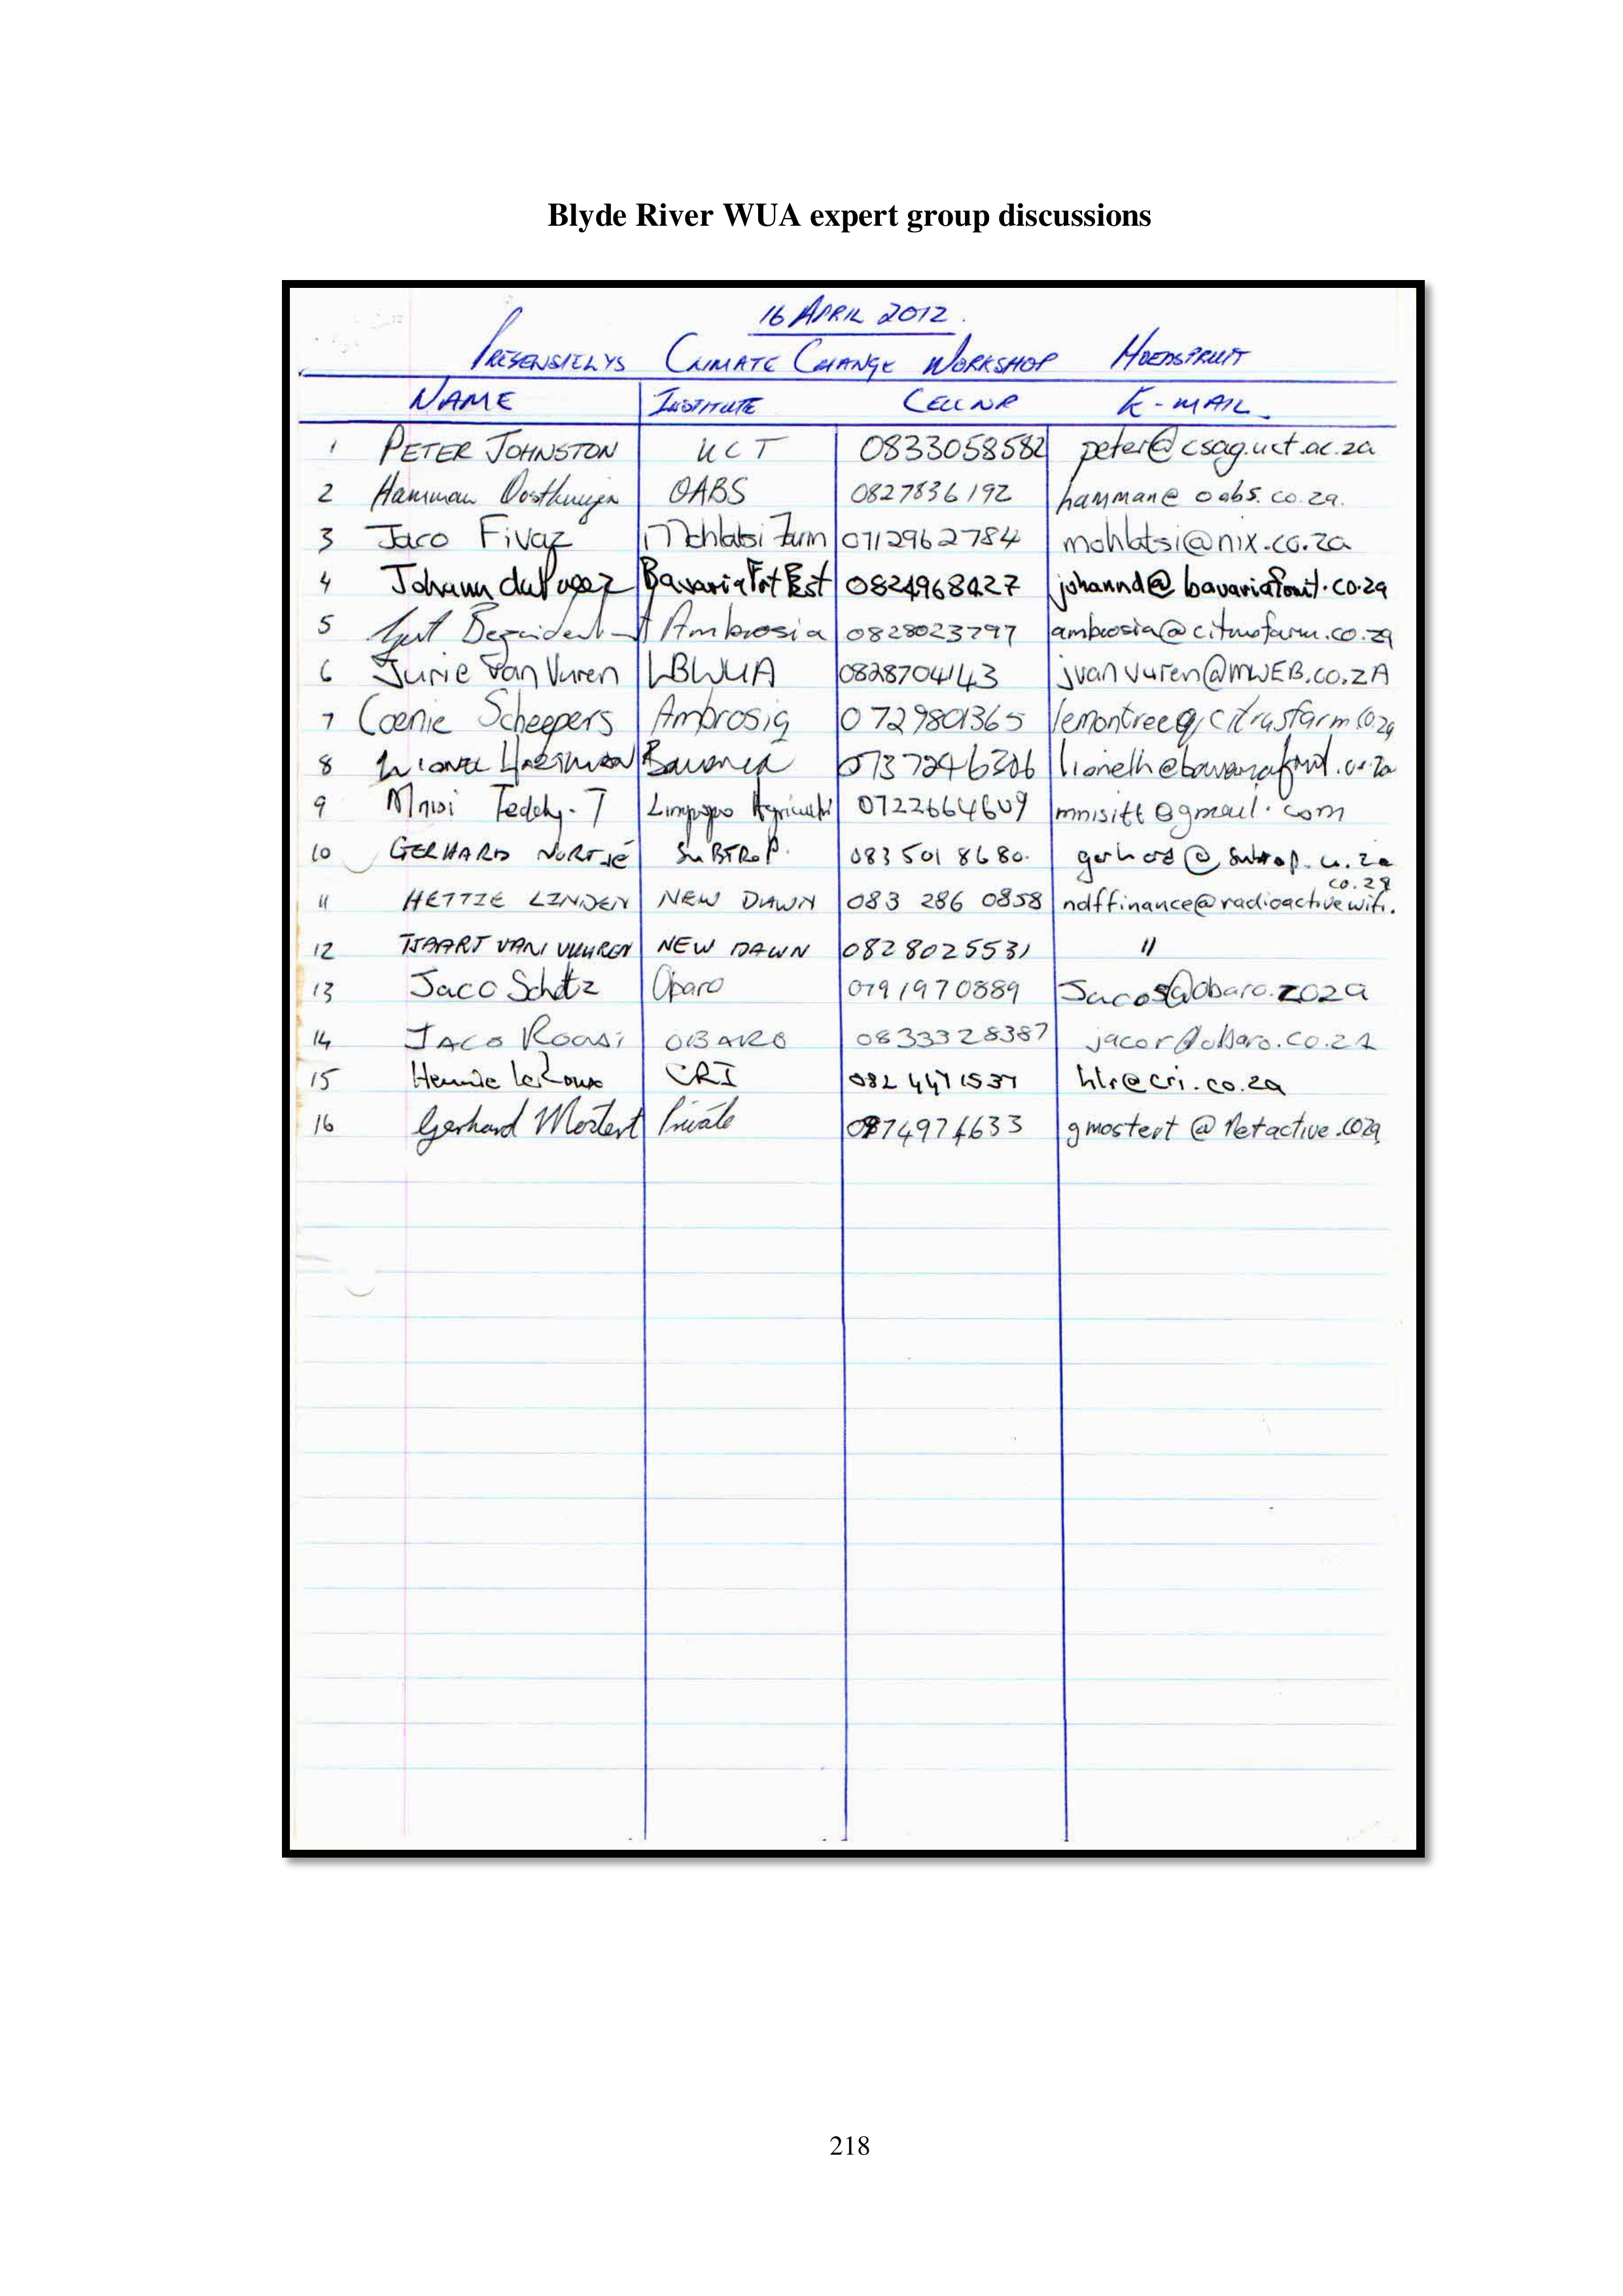 Blyde River WUA expert group discussions
16 APRIL 2012.
PRESENSIELYS CLIMATE CHANGE WORKSHOP HOEDSPRUIT
NAME INSTITUTE CELL NR E-MAIL
1 PETER JOHNSTON UCT 0833058582 peter@csag.uct.ac.za
2 Hamman Oosthuizen OABS 0827836192 hamman@oabs.co.za.
3 Jaco Fivaz Mohlatsi Farm 0712962784 mohlatsi@nix.co.za
4 Johann du Bavaria Frt Est johannd@bavariafruit.co.za
5 Bezuidenhout Ambrosia 0828023797 ambrosia@citrusfarm.co.za
6 Jurie van Vuren LBWUA 0828704143 jvanvuren@MWEB.co.zA
7 Coenie Scheepers Ambrosia 0729801365 lemontree@citrusfarm.co.za
8 Bavaria lionelh@bavariafruit.co.za
9 Mnisi Teddy. T Limpopo 0722664609 mnisitt@gmail.com
10 GERHARD NORTJÉ SUBTROP. 083 501 8680. gerhard@subtrop.co.za
11 HETTIE LINDEN NEW DAWN 083 286 0858 ndffinance@radioactivewifi.co.za
12 TJAART VAN VUUREN NEW DAWN 0828025531 "
13 Jaco 0791970889 Jacos@obaro.co.za
14 JACO OBARO 0833328387 jacor@obaro.co.za
15 Hennie le Roux CRI hlr@cri.co.za
16 Gerhard Mostert Private gmostert@netactive.co.za
218